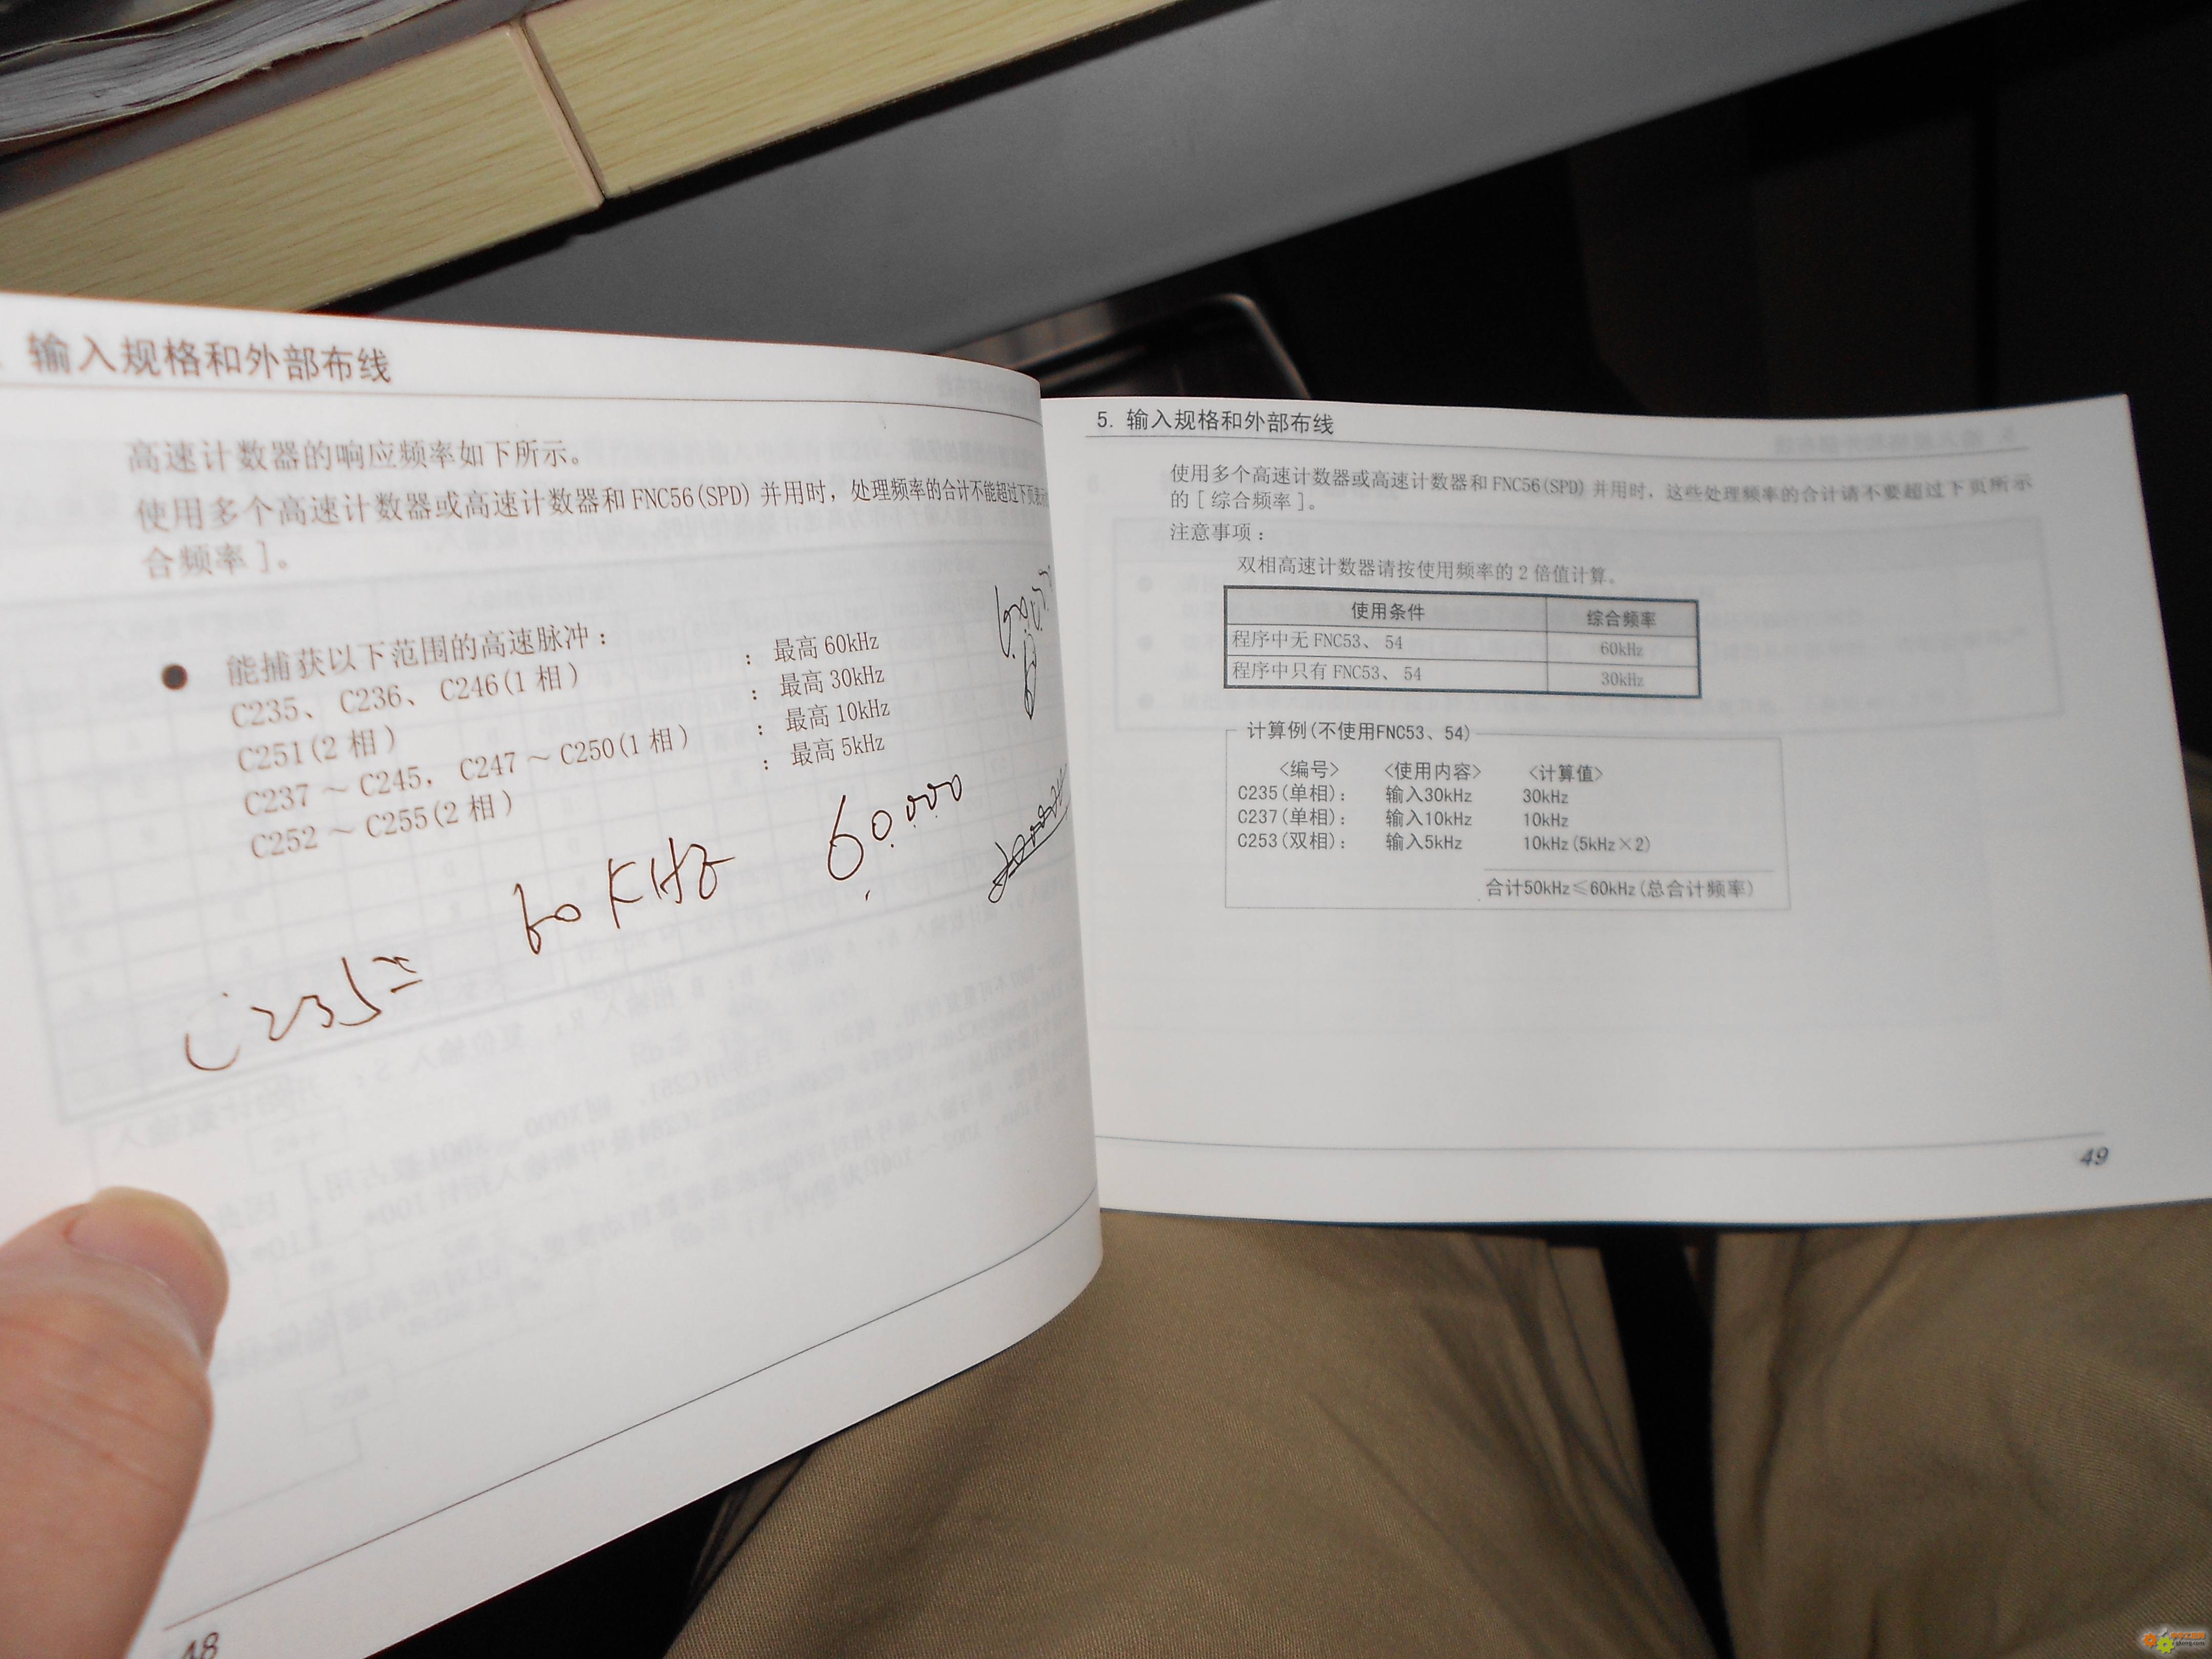 输入规格和外部布线
高速计数器的响应频率如下所示。
使用多个高速计数器或高速计数器和FNC56(SPD)并用时，处理频率的合计不能超过下页表示
合频率]。
● 能捕获以下范围的高速脉冲：
C235、C236、C246(1相) ：最高60kHz
C251(2相) ：最高30kHz
C237～C245，C247～C250(1相) ：最高10kHz
C252～C255(2相) ：最高5kHz
C235= 60KHZ 60.000
48
5. 输入规格和外部布线
使用多个高速计数器或高速计数器和FNC56(SPD)并用时，这些处理频率的合计请不要超过下页所示
的[综合频率]。
注意事项：
双相高速计数器请按使用频率的2倍值计算。
使用条件 综合频率
程序中无FNC53、54 60kHz
程序中只有FNC53、54 30kHz
计算例(不使用FNC53、54)
<编号> <使用内容> <计算值>
C235(单相)： 输入30kHz 30kHz
C237(单相)： 输入10kHz 10kHz
C253(双相)： 输入5kHz 10kHz(5kHz×2)
合计50kHz≤60kHz(总合计频率)
49